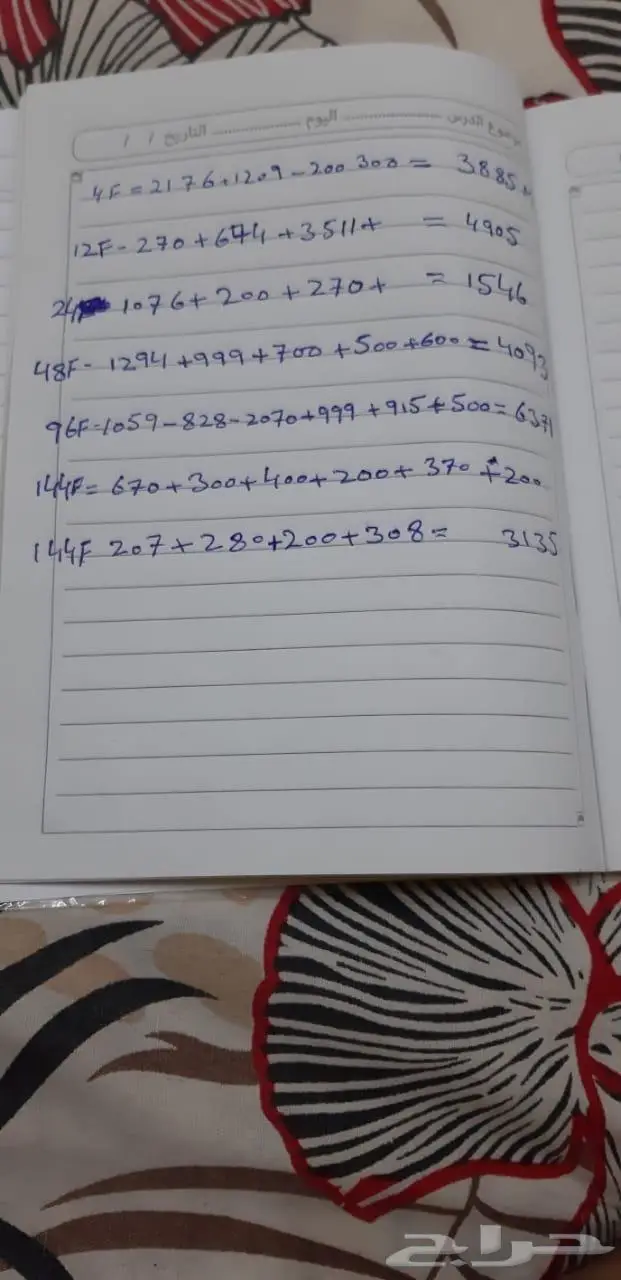 موضوع الدرس ............ اليوم ............ التاريخ / /
4F = 2176+1209-200 300 = 3885
12F- 270+674+3511+ = 4905
24 1076+200+270+ = 1546
48F- 1294+999+700+500+600=4093
96F-1059-828-2070+999+915+500=6371
144F= 670+300+400+200+370+200
144F 207+280+200+308= 3135
حراج